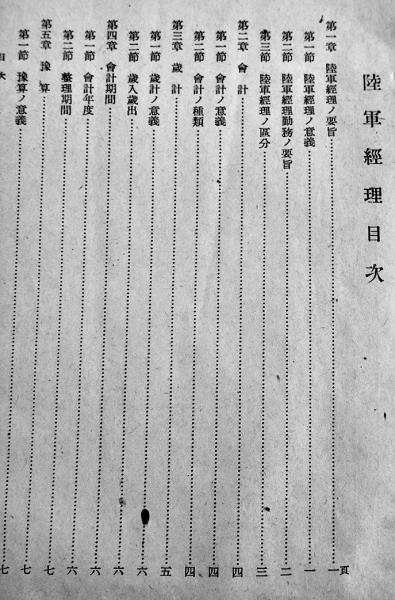 陸軍經理目次
頁
第一章 陸軍經理ノ要旨……一
第一節 陸軍經理ノ意義……一
第二節 陸軍經理勤務ノ要旨……二
第三節 陸軍經理ノ區分……三
第二章 會計……四
第一節 會計ノ意義……四
第二節 會計ノ種類……四
第三章 歲計……五
第一節 歲計ノ意義……六
第二節 歲入歲出……六
第四章 會計期間……六
第一節 會計年度……六
第二節 整理期間……七
第五章 豫算……七
第一節 豫算ノ意義……七
目次